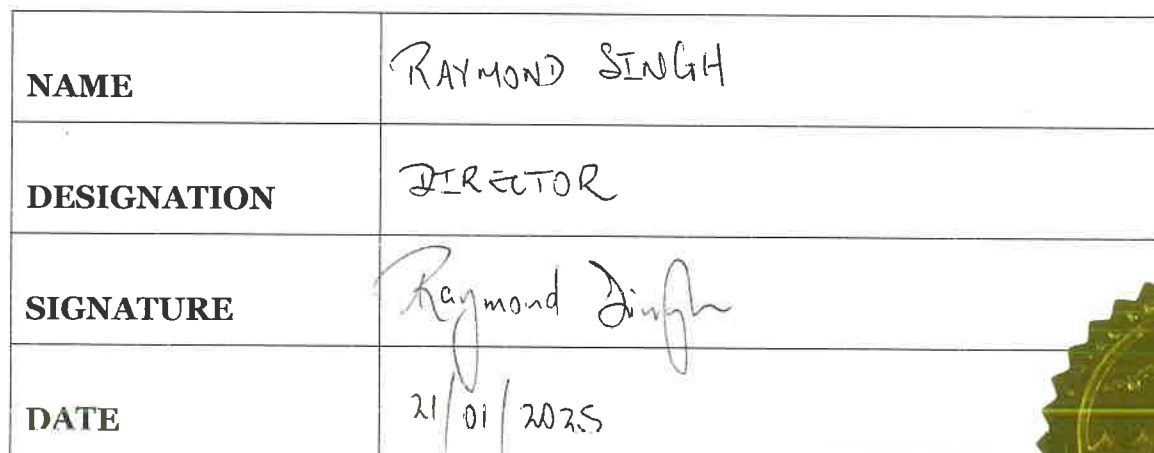 NAME RAYMOND SINGH
DESIGNATION DIRECTOR
SIGNATURE Raymond Singh
DATE 21/01/2025